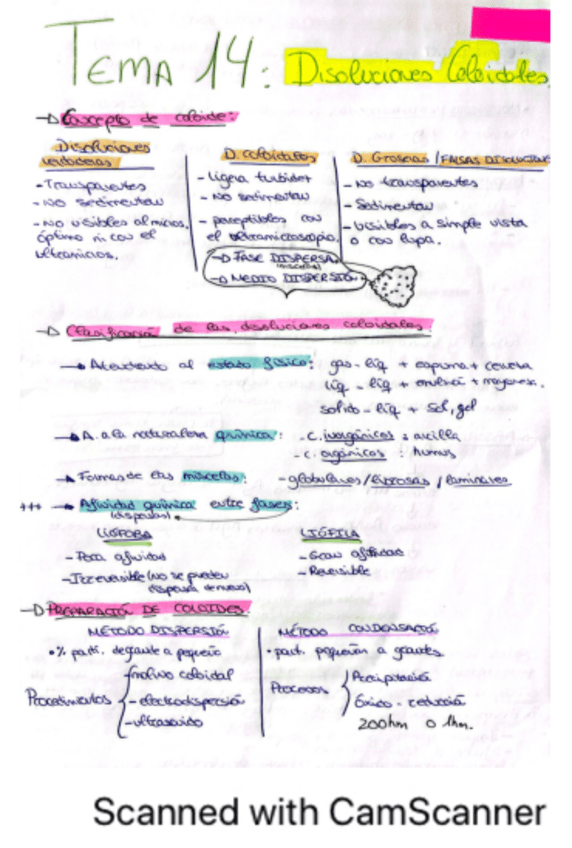 TEMA 14: Disoluciones Coloidales
Concepto de coloide:
Disoluciones verdaderas
- Transparentes
- No sedimentan
- No visibles al micros. óptimo ni con el ultramicros.
D. coloidales
- ligera turbidez
- No sedimentan
- perceptibles con el ultramicroscopio.
→ FASE DISPERSA
(micelia)
→ MEDIO DISPERSIÓN
D. Groseras / FALSAS DISOLUCIONE
- No transparentes
- Sedimentan
- visibles a simple vista o con lupa.
Clasificación de las disoluciones coloidales:
→ Atendiendo al estado físico: gas - líq + espuma + cerveza
líq - líq + emulsió + mayonesa.
solido - líq + sol, gel
→ A. a la naturaleza química: - c. inorgánicos : arcilla
- c. orgánicos : humus
→ Formas de las miscelas: - globulares / fibrosas / laminares
+++ → Afinidad química entre fases:
(dispersas)
LIÓFOBA
- Poca afinidad
- Irreversible (no se pueden dispersar de nuevo)
LIÓFILA
- Gran afinidad
- Reversible
PREPARACIÓ DE COLOIDES.
MÉTODO DISPERSIÓ
• % partí. de grande a pequeño
Procedimientos
- molino coloidal
- electrodispersión
- ultrasonido
MÉTODO CONDENSACIÓ
• part. pequeñas a grandes
Procesos
Precipitación
Óxido - reducción
200hm o 1hm.
Scanned with CamScanner